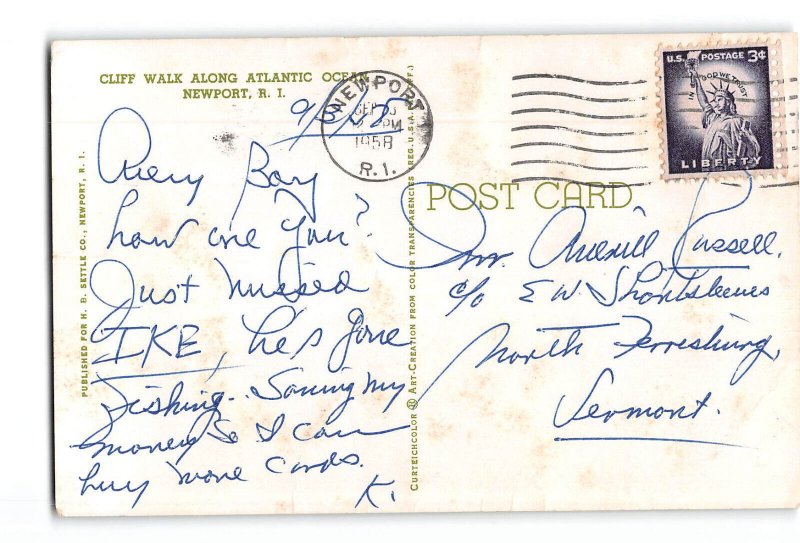 CLIFF WALK ALONG ATLANTIC OCEAN
NEWPORT, R. I.
9/3/58
Avery Boy
how are you?
Just missed
IKE, hes gone
fishing. Saving my
money so I can
buy more cards.
K.
PUBLISHED FOR H. B. SETTLE CO., NEWPORT, R. I.
CURTEICHCOLOR ® ART-CREATION FROM COLOR TRANSPARENCIES (REG. U.S.A.
NEWPORT
SEP
PM
1958
R. I.
U.S. POSTAGE 3¢
IN GOD WE TRUST
LIBERTY
POST CARD
Mr. Averill Russell,
c/o E W Shortsleeves
North Ferrisburg,
Vermont.